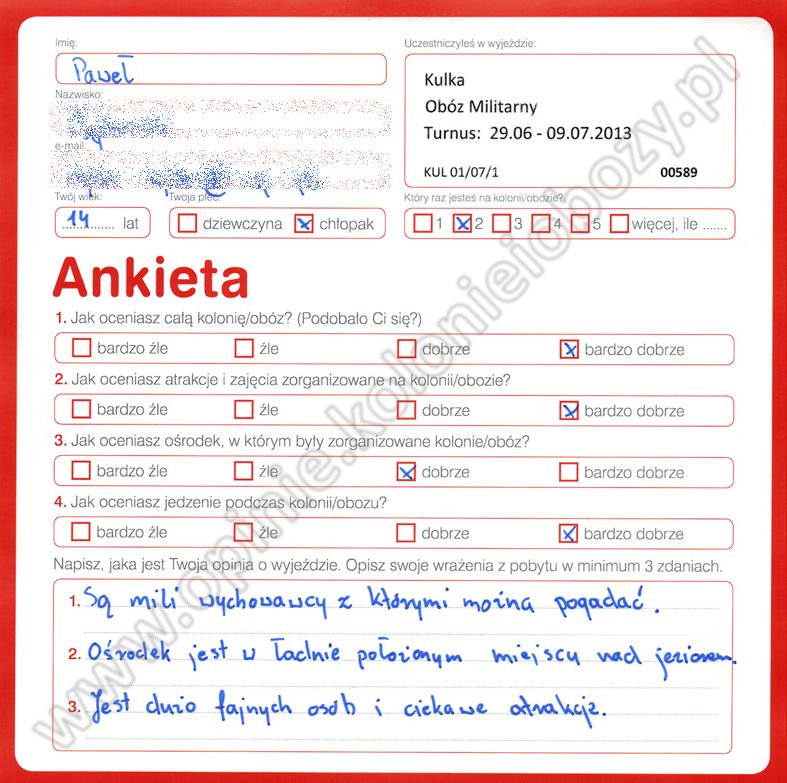 Imię:
Uczestniczyłeś w wyjeździe:
Paweł
Kulka
Obóz Militarny
Turnus: 29.06 - 09.07.2013
KUL 01/07/1 00589
Nazwisko:
e-mail
Twój wiek: Twoja płeć:
Który raz jesteś na kolonii/obozie?
14 lat dziewczyna chłopak
1 2 3 4 5 więcej, ile .......
Ankieta
1. Jak oceniasz całą kolonię/obóz? (Podobało Ci się?)
bardzo źle źle dobrze bardzo dobrze
2. Jak oceniasz atrakcje i zajęcia zorganizowane na kolonii/obozie?
bardzo źle źle dobrze bardzo dobrze
3. Jak oceniasz ośrodek, w którym były zorganizowane kolonie/obóz?
bardzo źle źle dobrze bardzo dobrze
4. Jak oceniasz jedzenie podczas kolonii/obozu?
bardzo źle źle dobrze bardzo dobrze
Napisz, jaka jest Twoja opinia o wyjeździe. Opisz swoje wrażenia z pobytu w minimum 3 zdaniach.
1. Są mili wychowawcy z którymi można pogadać.
2. Ośrodek jest w ładnie położonym miejscu nad jeziorem.
3. Jest dużo fajnych osób i ciekawe atrakcje.
www.opinie.kolonieiobozy.pl